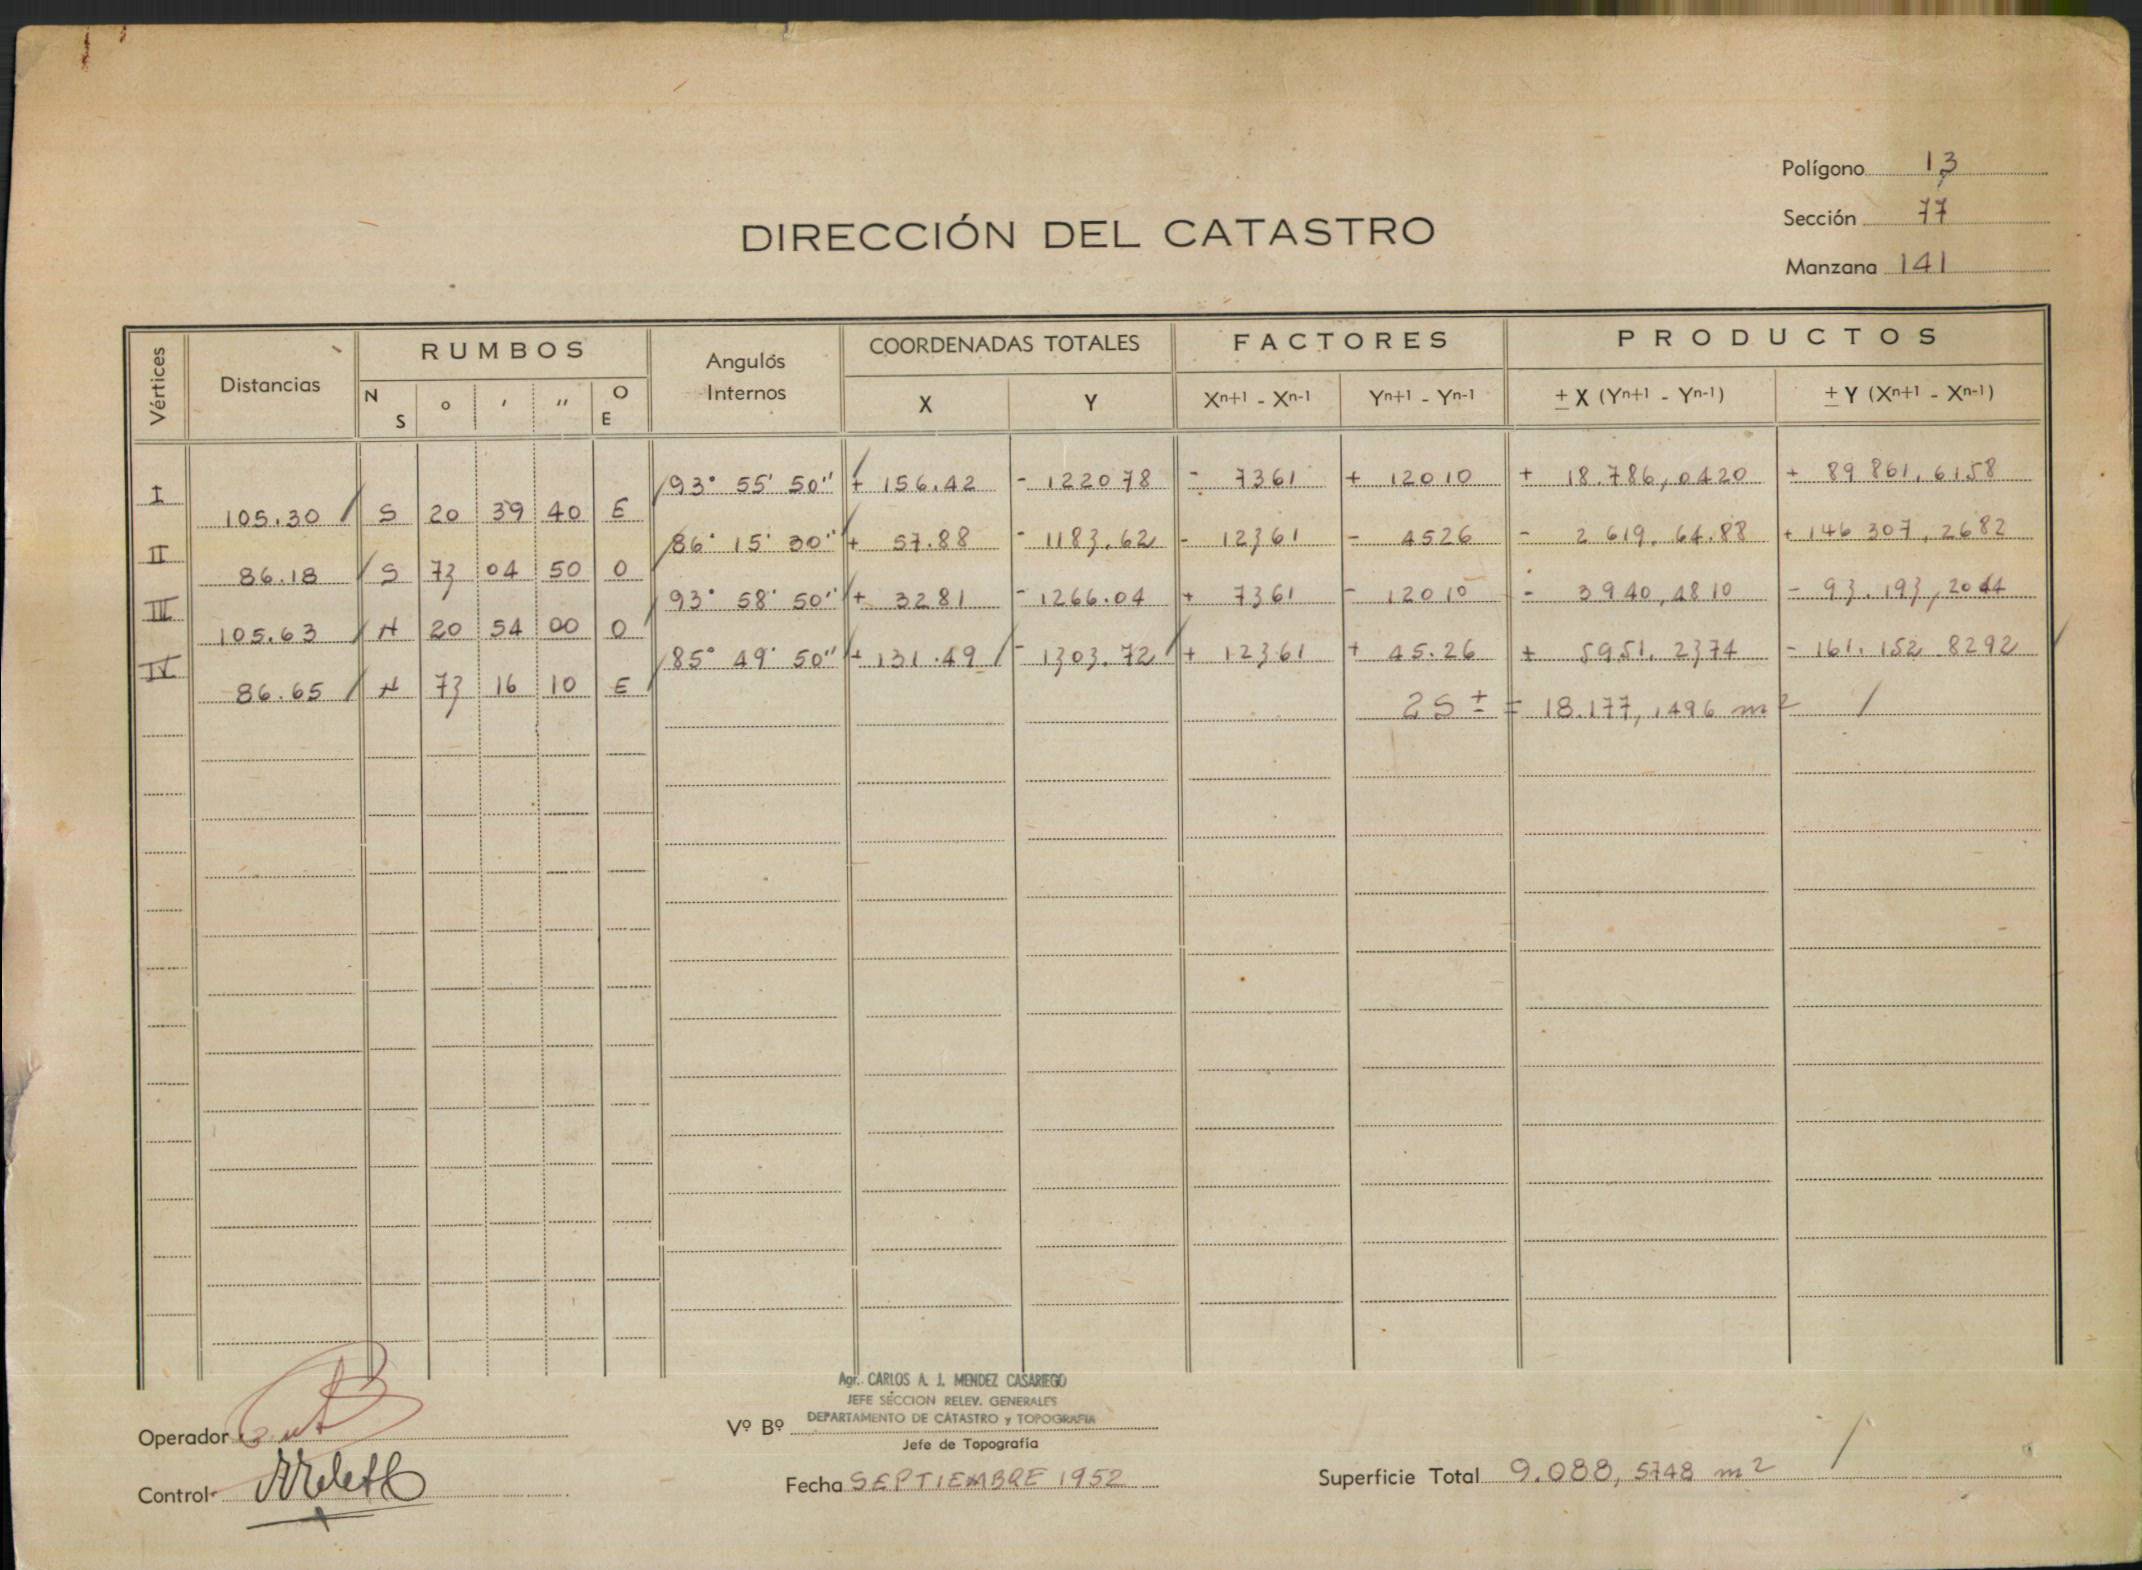 Polígono 13
Sección 77
Manzana 141
DIRECCIÓN DEL CATASTRO
Vértices Distancias RUMBOS Angulos Internos COORDENADAS TOTALES FACTORES PRODUCTOS
N S o ' '' O E X Y Xn+1 - Xn-1 Yn+1 - Yn-1 ± X (Yn+1 - Yn-1) ± Y (Xn+1 - Xn-1)
I 93° 55' 50" + 156.42 - 122078 - 7361 + 12010 + 18.786,0420 + 89 861,6158
105.30 S 20 39 40 E
II 86° 15' 30" + 57.88 - 1183.62 - 12361 - 4526 - 2 619.64.88 + 146 307,2682
86.18 S 73 04 50 O
III 93° 58' 50" + 3281 - 1266.04 + 7361 - 12010 - 3940,4810 - 93.193,2044
105.63 N 20 54 00 O
IV 85° 49' 50" + 131.49 - 1303.72 + 12361 + 45.26 + 5951.2374 - 161.152.8292
86.65 N 73 16 10 E
2S ± = 18.177,1496 m²
Agr. CARLOS A. J. MENDEZ CASARIEGO
JEFE SECCION RELEV. GENERALES
DEPARTAMENTO DE CATASTRO y TOPOGRAFIA
Operador
Vº Bº
Jefe de Topografía
Control
Fecha SEPTIEMBRE 1952
Superficie Total 9.088,5748 m²